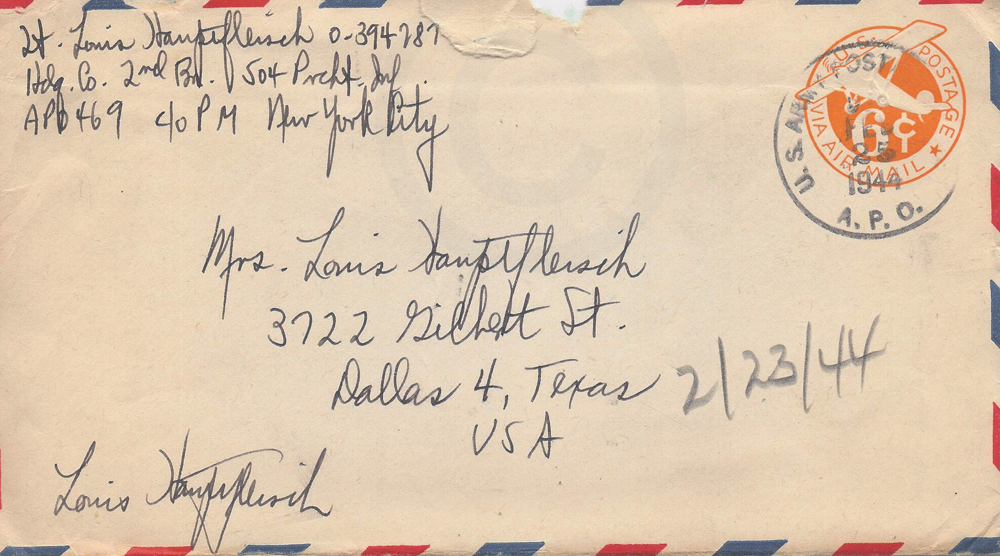 Lt. Louis Hauptfleisch O-394787
Hdq. Co. 2nd Bn. 504 Prcht. Inf.
APO 469 c/o P M New York City
U.S. POSTAGE
VIA AIR MAIL
6¢
U.S. ARMY POST
FEB
25
1944
A.P.O.
Mrs. Louis Hauptfleisch
3722 Gilbert St.
Dallas 4, Texas
USA
2/23/44
Louis Hauptfleisch